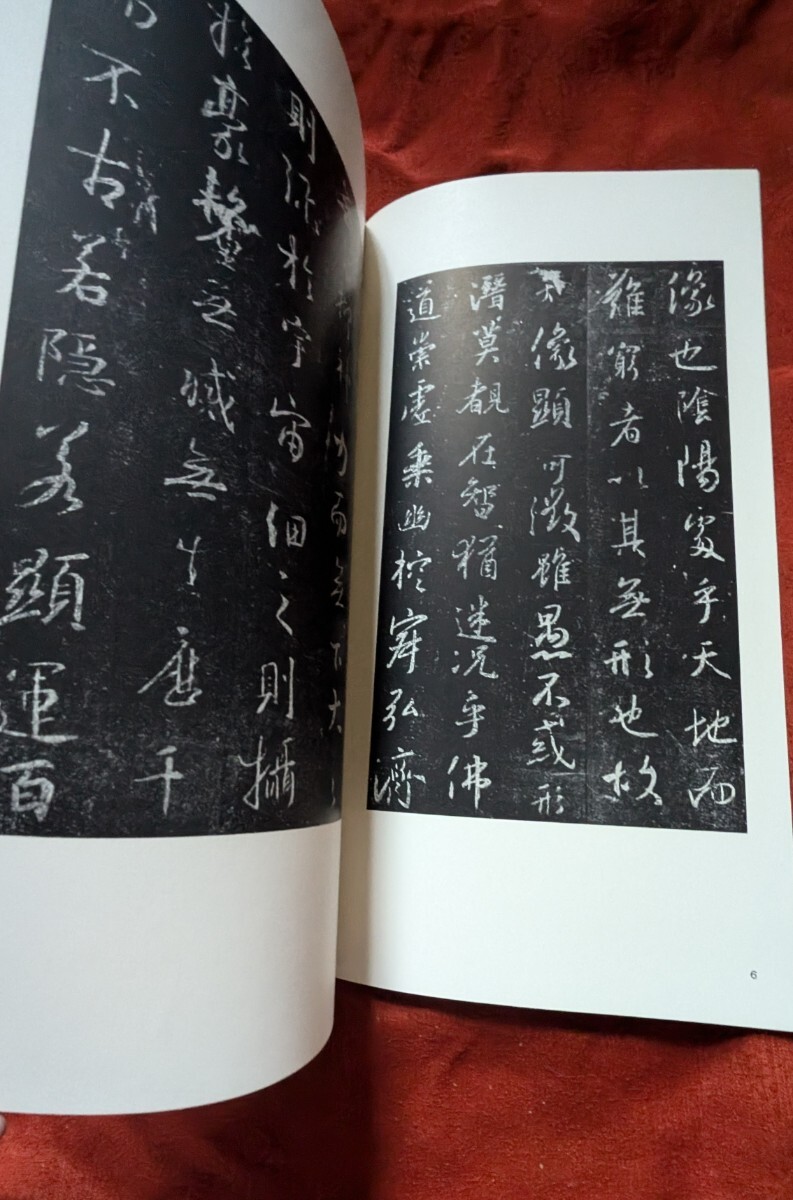 像也陰陽處乎天地而
難窮者以其無形也故
像顯可徵雖愚不惑形
潛莫覩在智猶迷況乎佛
道崇虛乘幽控寂弘濟
力而無下大之
則彌於宇宙細之則攝
於毫釐無滅無生歷千
不古若隱若顯運百
6